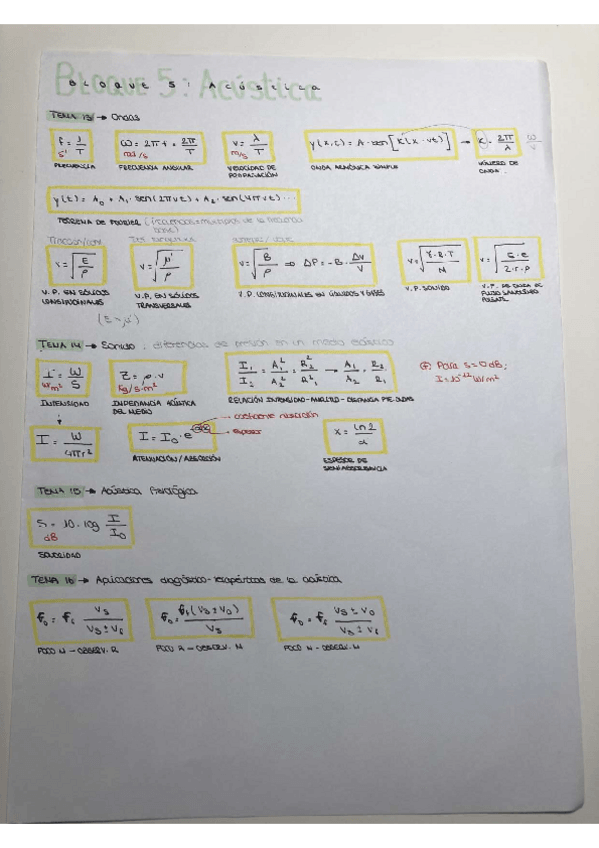 Bloque 5: Acústica
TEMA 13 → Ondas
f = 1/T
s⁻¹
FRECUENCIA
ω = 2πf = 2π/T
rad/s
FRECUENCIA ANGULAR
v = λ/T
m/s
VELOCIDAD DE PROPAGACIÓN
y(x,t) = A·sen[K(x - vt)] → K = 2π/λ ω/v
ONDA ARMÓNICA SIMPLE
NÚMERO DE ONDA
y(t) = A₀ + A₁·sen(2πνt) + A₂·sen(4πνt)...
TEOREMA DE FOURIER
v = √(E/ρ)
V.P. EN SÓLIDOS LONGITUDINALES
v = √(μ/ρ)
V.P. EN SÓLIDOS TRANSVERSALES
v = √(B/ρ) ⇒ ΔP = -B · ΔV/V
V.P. LONGITUDINALES EN LÍQUIDOS Y GASES
v = √(γ·R·T/M)
V.P. SONIDO
v = √(E·e/2·r·ρ)
V.P. DE ONDA DE FLUJO SANGUÍNEO PULSÁTIL
TEMA 14 → Sonido: diferencias de presión en un medio elástico
I = W/S
W/m²
INTENSIDAD
Z = ρ·v
Kg/s·m²
IMPEDANCIA ACÚSTICA DEL MEDIO
I₁/I₂ = A₁²/A₂² = R₂²/R₁² → A₁/A₂ = R₂/R₁
RELACIÓN INTENSIDAD-AMPLITUD-DISTANCIA
Para S=0 dB;
I=10⁻¹² W/m²
I = W/4πr²
I = I₀·e
coeficiente
espesor
ATENUACIÓN/ABSORCIÓN
x = ln2/α
ESPESOR DE SEMIABSORBANCIA
TEMA 15 → Acústica fisiológica
S = 10·log I/I₀
dB
SONORIDAD
TEMA 16 → Aplicaciones diagnóstico-terapéuticas de la acústica
f₀ = f_f v_s/(v_s ± v_f)
FOCO M - OBSERV. R
f₀ = f_f(v_s ± v₀)/v_s
FOCO R - OBSERV. M
f₀ = f_f (v_s ± v₀)/(v_s ± v_f)
FOCO M - OBSERV. M